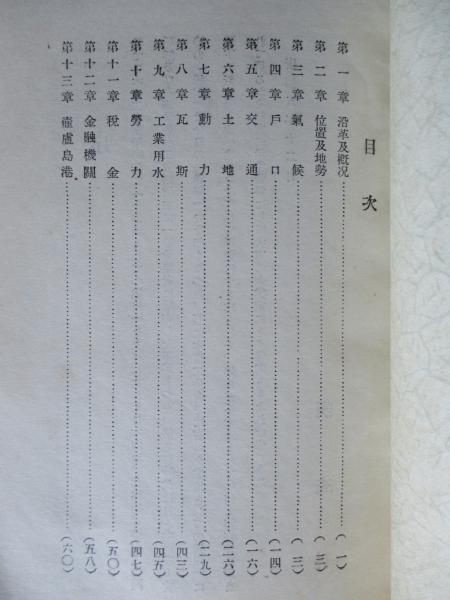 目次
第一章 沿革及概況………(一)
第二章 位置及地勢………(三)
第三章 氣候………(三)
第四章 戶口………(一四)
第五章 交通………(一六)
第六章 土地………(二六)
第七章 動力………(二九)
第八章 瓦斯………(四三)
第九章 工業用水………(四五)
第十章 勞力………(四七)
第十一章 稅金………(五〇)
第十二章 金融機關………(五八)
第十三章 壺盧島港………(六〇)